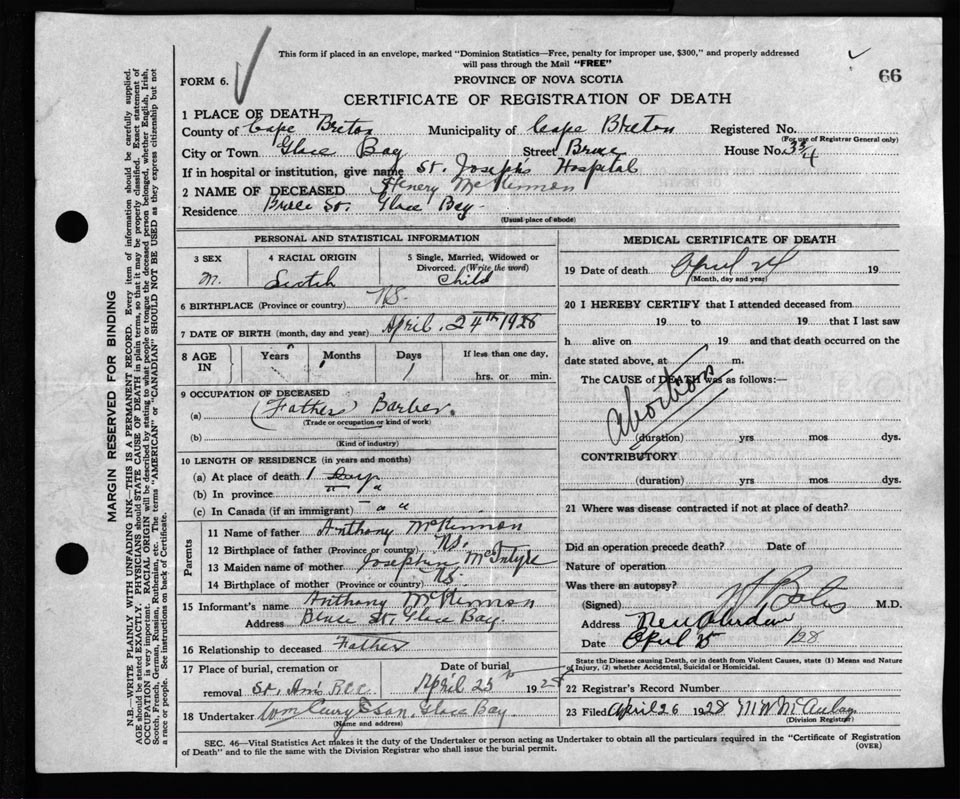 This form if placed in an envelope, marked "Dominion Statistics—Free, penalty for improper use, $300," and properly addressed
will pass through the Mail "FREE"
66
FORM 6.
PROVINCE OF NOVA SCOTIA
CERTIFICATE OF REGISTRATION OF DEATH
1 PLACE OF DEATH
County of Cape Breton Municipality of Cape Breton Registered No.
(For use of Registrar General only)
City or Town Glace Bay Street Bruce House No. 334
If in hospital or institution, give name St. Joseph's Hospital
2 NAME OF DECEASED Henery McKinnon
Residence Bruce St. Glace Bay.
(Usual place of abode)
PERSONAL AND STATISTICAL INFORMATION
3 SEX
M.
4 RACIAL ORIGIN
Scotch
5 Single, Married, Widowed or
Divorced. (Write the word)
Child
6 BIRTHPLACE (Province or country) N.S.
7 DATE OF BIRTH (month, day and year) April 24th 1928
8 AGE IN Years Months Days If less than one day,
1 hrs. or min.
9 OCCUPATION OF DECEASED
(a) (Father) Barber.
(Trade or occupation or kind of work)
(b)
(Kind of industry)
10 LENGTH OF RESIDENCE (in years and months)
(a) At place of death 1 Day
(b) In province " "
(c) In Canada (if an immigrant) " "
Parents
11 Name of father Anthony McKinnon
12 Birthplace of father (Province or country) N.S.
13 Maiden name of mother Josephine McIntyre
14 Birthplace of mother (Province or country) N.S.
15 Informant's name Anthony McKinnon
Address Bruce St. Glace Bay.
16 Relationship to deceased Father
17 Place of burial, cremation or Date of burial
removal St. Ann's R.C.C. April 25th 1928
18 Undertaker Wm Curry & Son, Glace Bay
(Name and address)
MEDICAL CERTIFICATE OF DEATH
19 Date of death April 24 19
(Month, day and year)
20 I HEREBY CERTIFY that I attended deceased from
19 to 19 that I last saw
h alive on , 19 and that death occurred on the
date stated above, at m.
The CAUSE of DEATH was as follows:—
Abortion
(duration) yrs mos dys.
CONTRIBUTORY
(duration) yrs mos dys.
21 Where was disease contracted if not at place of death?
Did an operation precede death? Date of
Nature of operation
Was there an autopsy?
(Signed) M.D.
Address New Aberdeen
Date April 25 /28
State the Disease causing Death, or in death from Violent Causes, state (1) Means and Nature
of Injury, (2) whether Accidental, Suicidal or Homicidal.
22 Registrar's Record Number
23 Filed April 26 1928 M W McAulay
(Division Registrar)
SEC. 46—Vital Statistics Act makes it the duty of the Undertaker or person acting as Undertaker to obtain all the particulars required in the "Certificate of Registration
of Death" and to file the same with the Division Registrar who shall issue the burial permit.
(OVER)
MARGIN RESERVED FOR BINDING
N.B.—WRITE PLAINLY WITH UNFADING INK—THIS IS A PERMANENT RECORD. Every item of information should be carefully supplied.
AGE should be stated EXACTLY. PHYSICIANS should STATE CAUSE OF DEATH in plain terms, so that it may be properly classified. Exact statement of
OCCUPATION is very important. RACIAL ORIGIN will be described by stating to what people or tongue the deceased person belonged, whether English, Irish,
Scotch, French, German, Russian, Ruthenian, etc. The terms "AMERICAN" or "CANADIAN" SHOULD NOT BE USED as they express citizenship but not
a race or people. See instructions on back of Certificate.